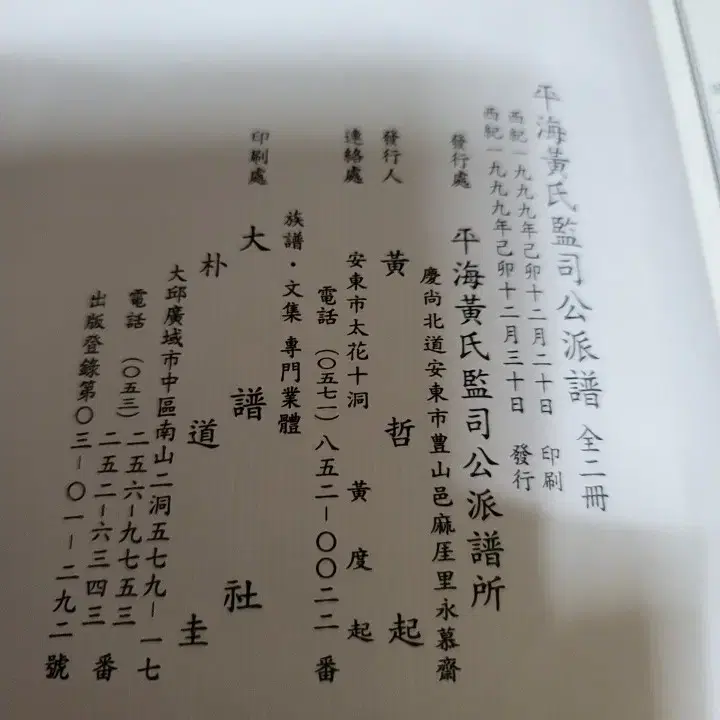 平海黃氏監司公派譜 全二冊
西紀一九九九年己卯十二月二十日 印刷
西紀一九九九年己卯十二月三十日 發行
發行處 平海黃氏監司公派譜所
慶尚北道安東市豊山邑麻厓里永慕齋
發行人 黃哲起
連絡處 安東市太花十洞 黃度起
電話 (〇五七一)八五二－〇〇二二番
族譜・文集 專門業體
印刷處 大譜社
朴道圭
大邱廣域市中區南山二洞五七九－一七
電話 (〇五三)二五六－九七五三
二五二－六三四三番
出版登錄第〇三－〇一－二九二號